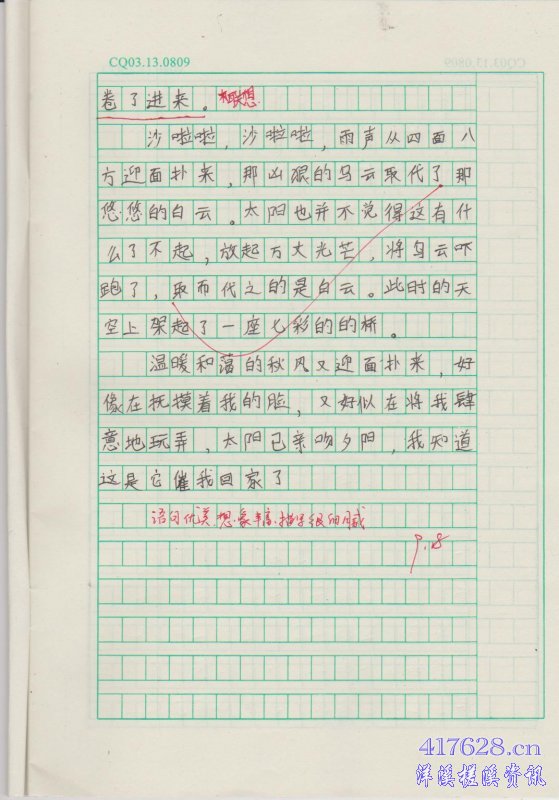 CQ03.13.0809
卷了进来。联想
沙啦啦，沙啦啦，雨声从四面八
方迎面扑来，那凶狠的乌云取代了那
悠悠的白云。太阳也并不觉得这有什
么了不起，放起万丈光芒，将乌云吓
跑了，取而代之的是白云。此时的天
空上架起了一座七彩的的桥。
温暖和蔼的秋风又迎面扑来，好
像在抚摸着我的脸，又好似在将我肆
意地玩弄，太阳已亲吻夕阳，我知道
这是它催我回家了
语句优美，想象丰富，描写很细腻
9.18
417628.cn
洋溪槎溪资讯